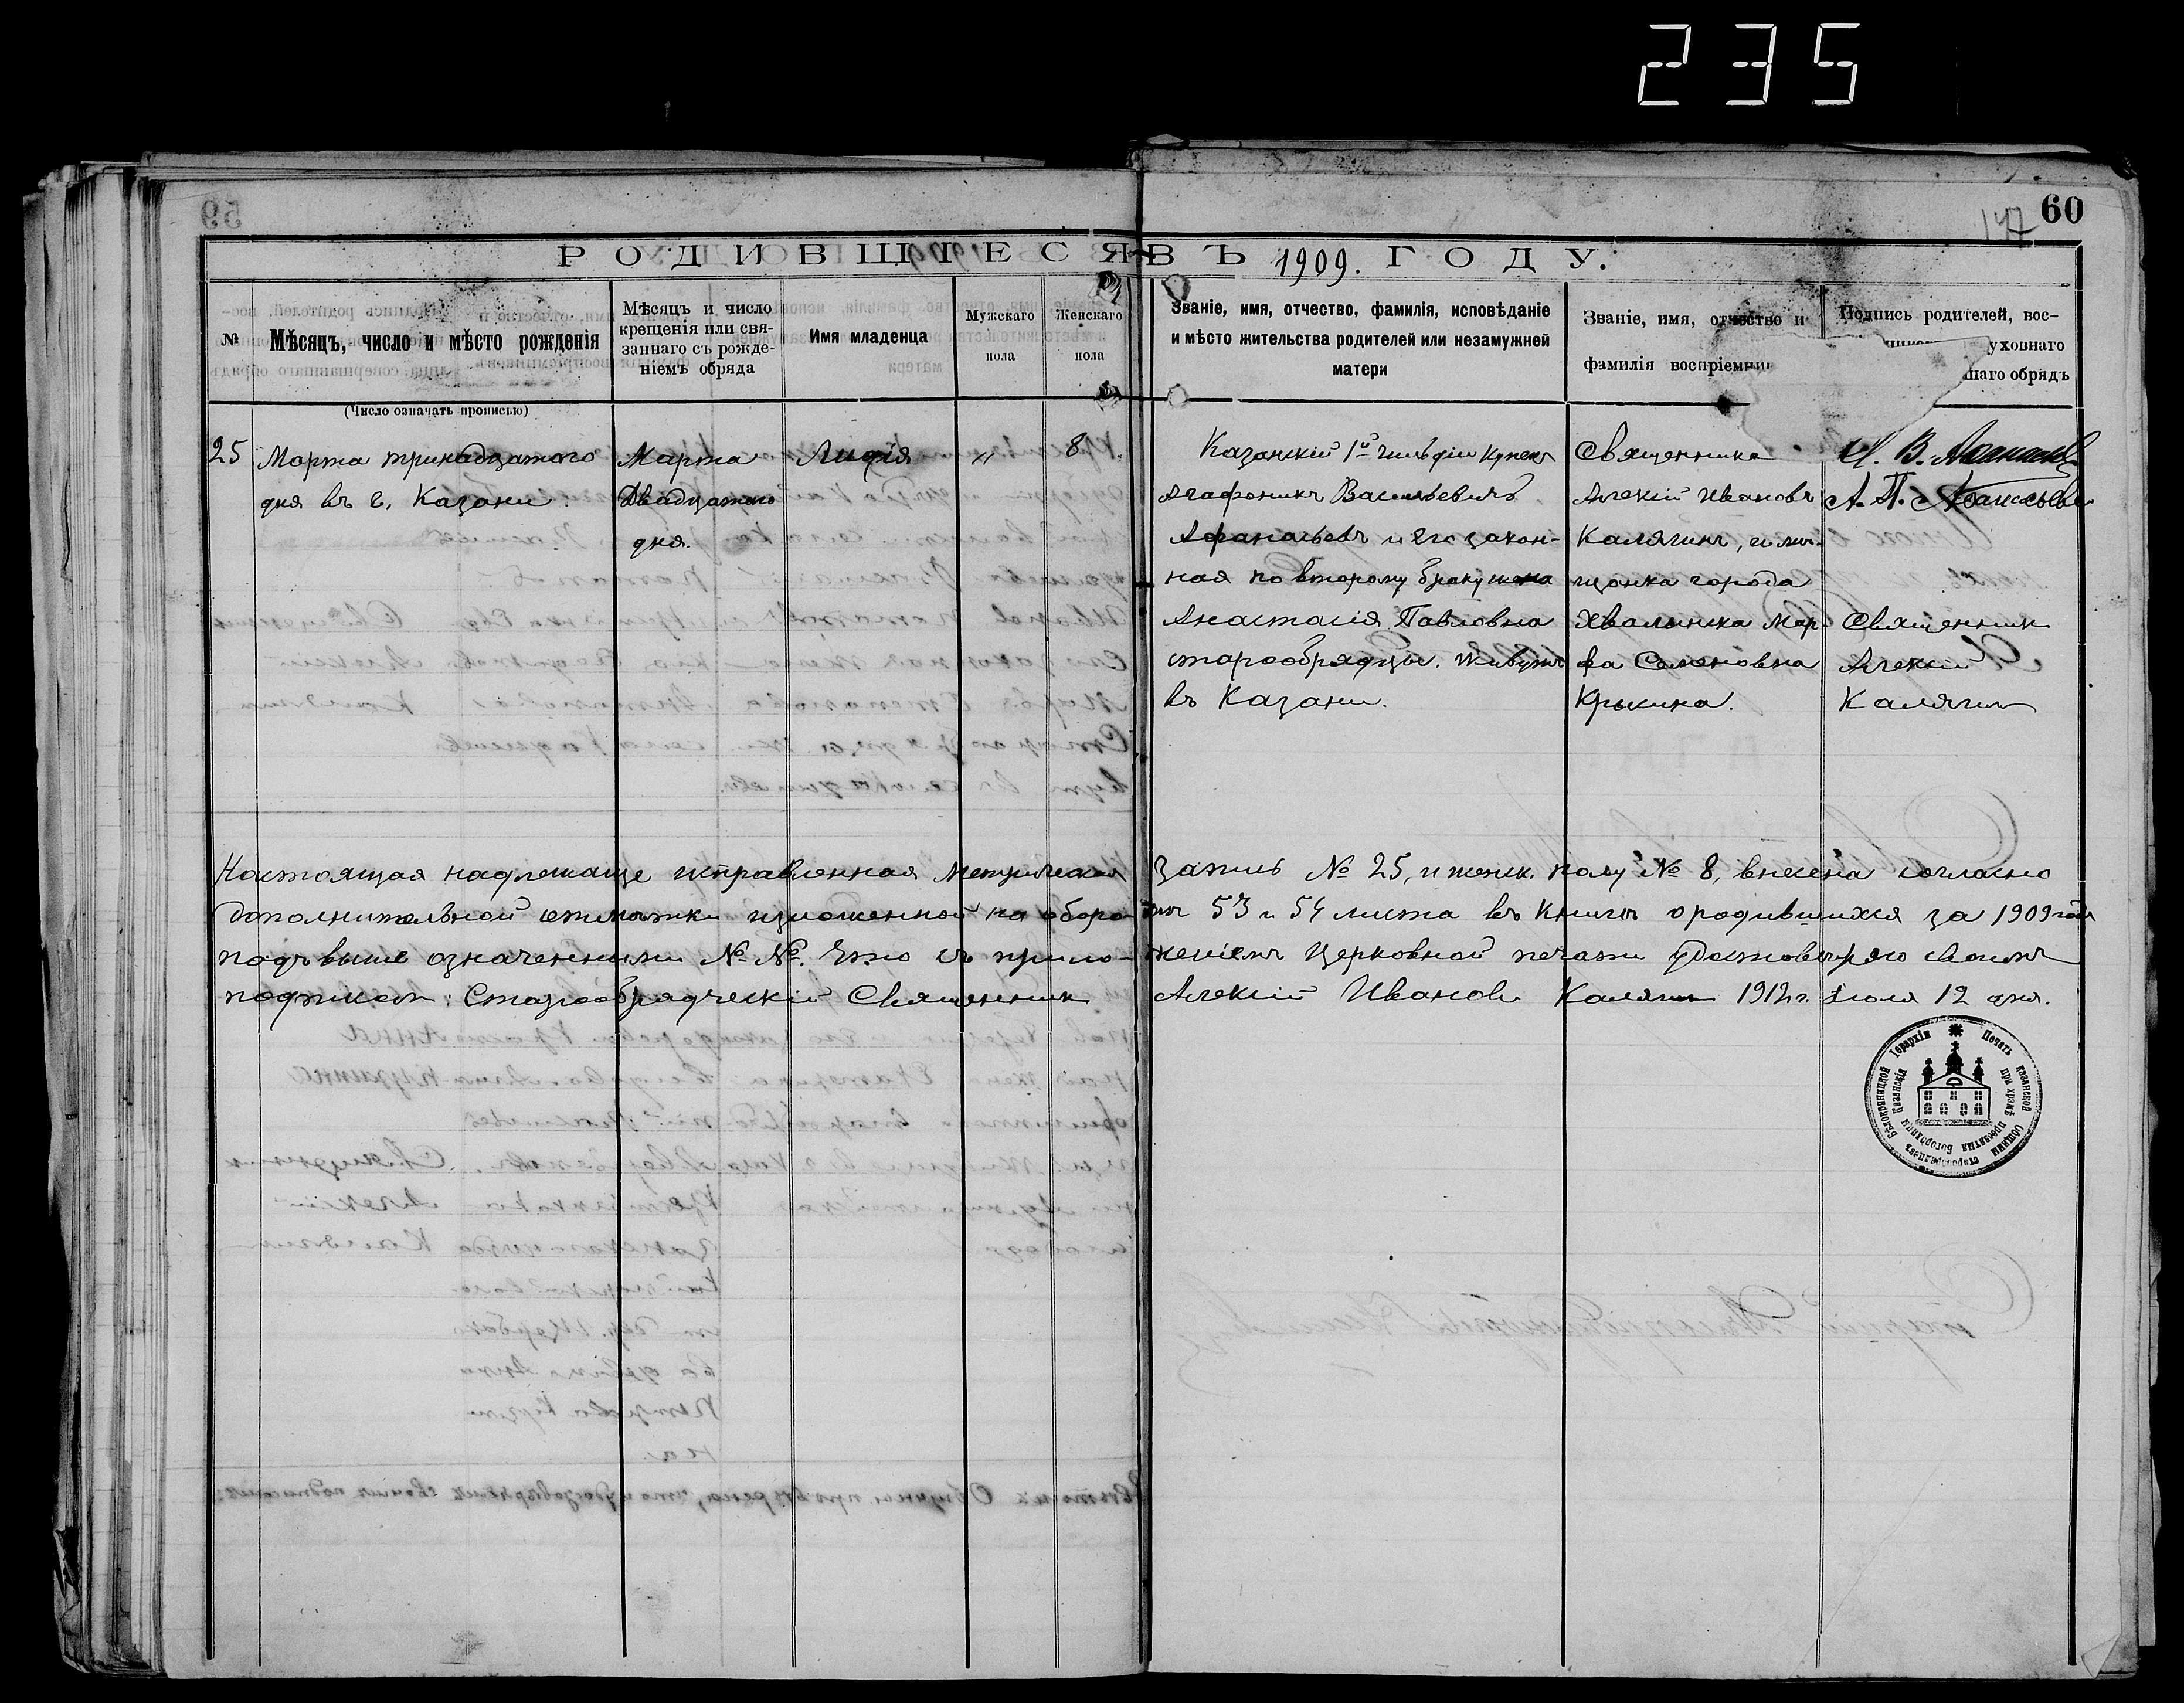 235
60
147
РОДИВШІЕСЯ ВЪ 1909. ГОДУ.
№
Мѣсяцъ, число и мѣсто рожденія
(Число означать прописью)
Мѣсяцъ и число
крещенія или свя-
заннаго съ рожде-
ніемъ обряда
Имя младенца
Мужскаго
пола
Женскаго
пола
Званіе, имя, отчество, фамилія, исповѣданіе
и мѣсто жительства родителей или незамужней
матери
Званіе, имя, отчество и
фамилія воспріемни
Подпись родителей, вос-
уховнаго
шаго обрядъ
25
Марта тринадцатаго
дня въ г. Казани.
Марта
Двадцатаго
дня.
Лидія
"
8
Казанскій 1й гильдіи купецъ
Агафоникъ Васильевичъ
Афанасьевъ и его закон-
ная по второму браку жена
Анастасія Павловна
старообрядцы. живутъ
въ Казани.
Священника
Алексій Ивановъ
Калягинъ, и мѣ-
щанка города
Хвалынска Мар-
фа Семеновна
Крыкина.
А. В. Афанасьев
А. П. Афанасьева
Священник
Алексій
Калягин
Настоящая надлежаще исправленная метрическая запись № 25, и женск. полу № 8, внесена согласно
дополнительной статьи изложенной на оборотѣ 53 и 54 листа въ книгѣ о родившихся за 1909 годъ
подъ выше означенными №№. Что съ прило-женіемъ Церковной печати удостовѣряю своимъ
подписом: Старообрядческій Священник Алексій Иванов Калягин 1912 г. Іюля 12 дня.
Печать Казанской общины старообрядцевъ Бѣлокриницкой Іерархіи
при храмѣ Казанскія пресвятыя Богородицы